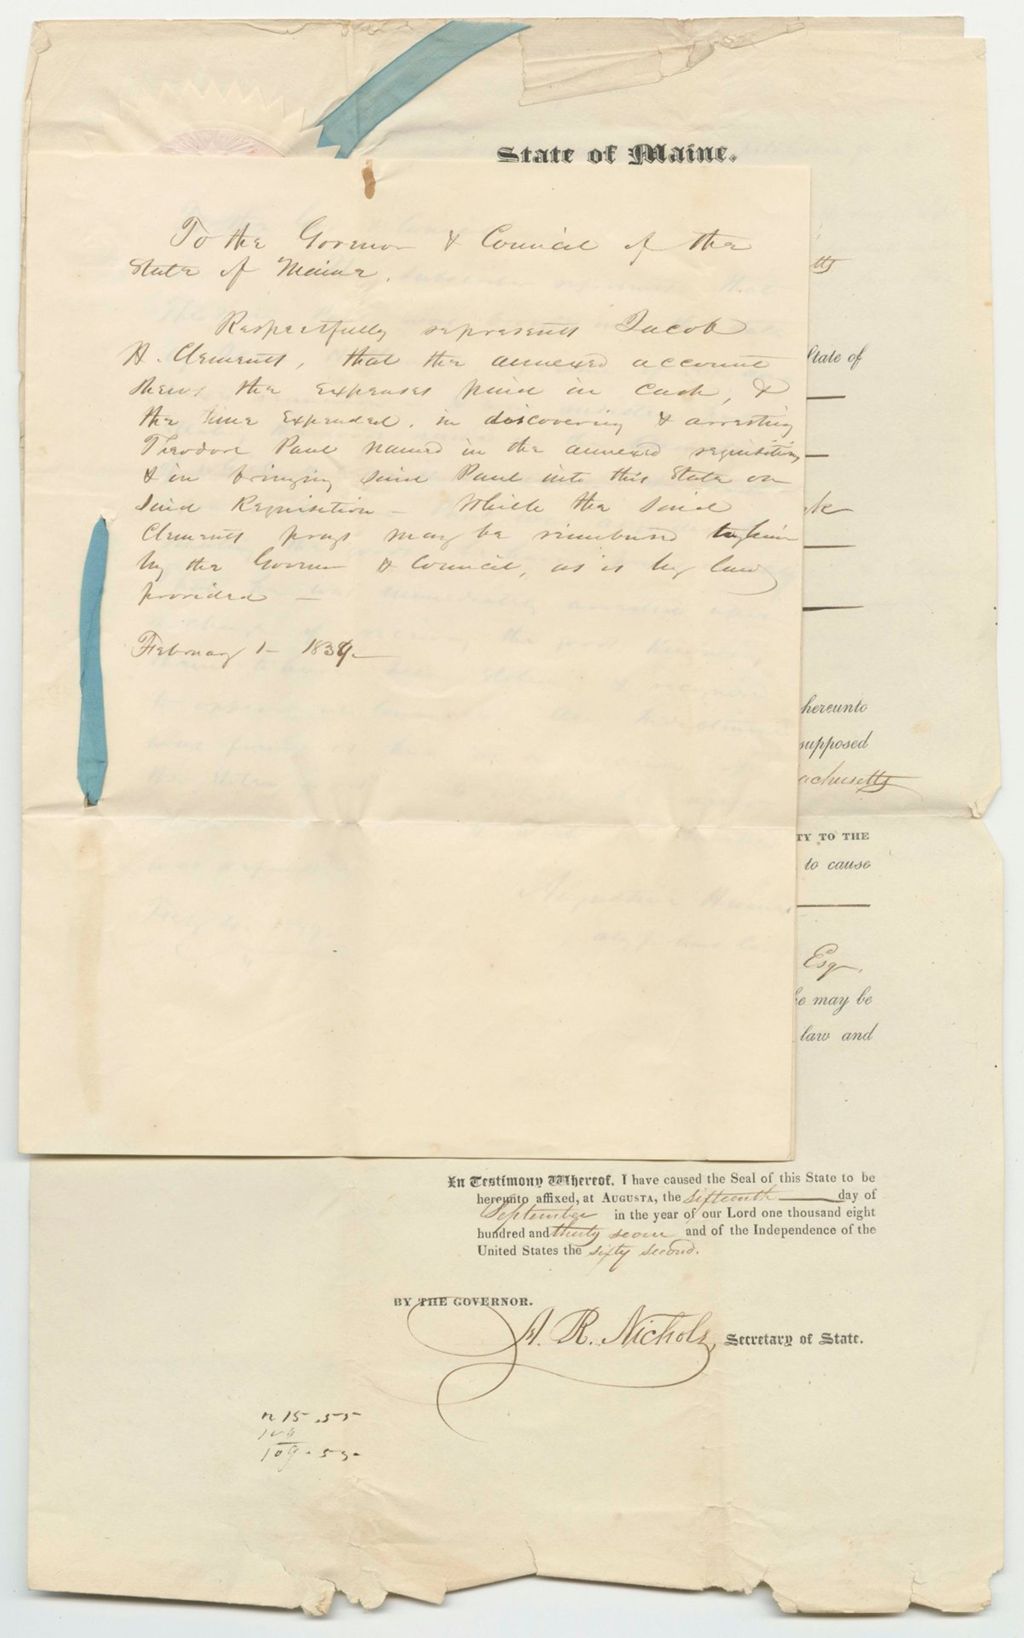 State of Maine.
To the Govenor & Council of the
State of Maine.
Respectfully represents Jacob
H. Clements, that the annexed account
shews the expenses paid in cash, &
the time expended, in discovering & arresting
Theodore Paul named in the annexed requisition
& in bringing said Paul into this State on
said Requisition — Which the said
Clements prays may be reimbursed to him
by the Govenor & Council, as is by law
provided —
February 1 — 183
tts
State of
hereunto
supposed
achusetts
TY TO THE
to cause
Esq.
he may be
law and
In Testimony Whereof, I have caused the Seal of this State to be
hereunto affixed, at AUGUSTA, the fifteenth day of
September in the year of our Lord one thousand eight
hundred and thirty seven and of the Independence of the
United States the sixty second.
BY THE GOVERNOR.
A. R. Nichols, Secretary of State.
15.55